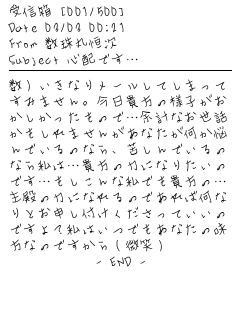 受信箱 [001/500]
Date 08/08 00:21
From 数珠丸恒次
Subject 心配です…
数）いきなりメールしてしまって
すみません。今日貴方の様子がお
かしかったもので…余計なお世話
かもしれませんがあなたが何か悩
んでいるのなら、苦しんでいるの
なら私は…貴方の力になりたいの
です…もしこんな私でも貴方の…
主殿の力になれるのであれば何な
りとお申し付けくださっていいの
ですよ？私はいつでもあなたの味
方なのですから（微笑）
- END -